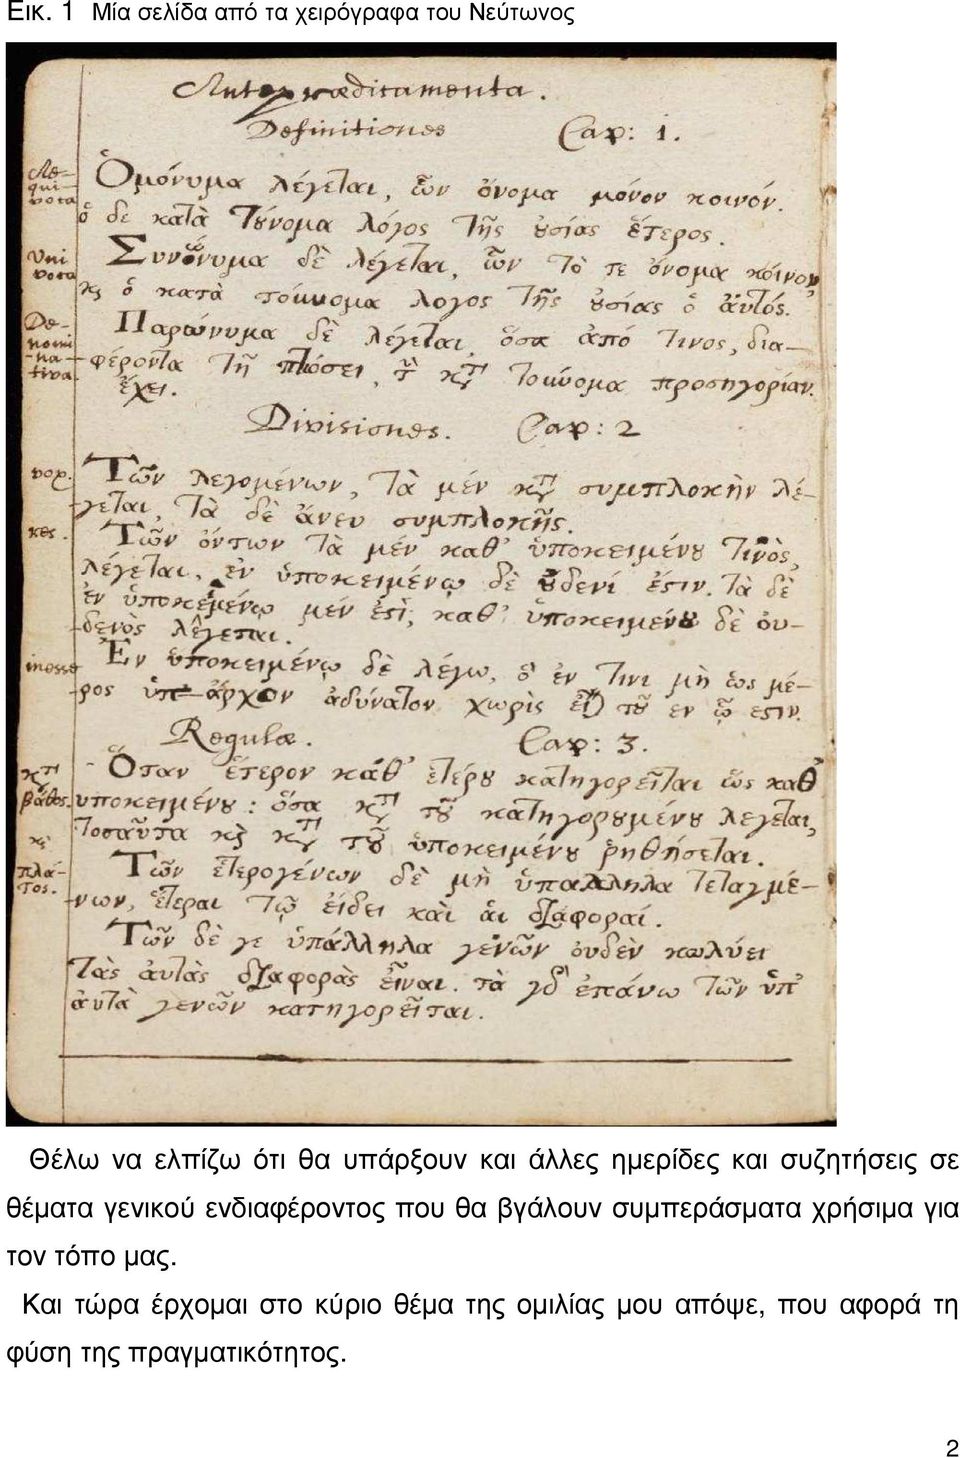 Εικ. 1 Μία σελίδα από τα χειρόγραφα του Νεύτωνος
Definitiones Cap: 1.
Ὁμόνυμα λέγεται, ὧν ὄνομα μόνον κοινόν.
ὁ δε κατὰ τȣ́νομα λόγος τῆς ȣ̓σίας ἕτερος.
Συνώνυμα δὲ λέγεται, ὧν τὸ τε ὄνομα κοινον,
ϗ ὁ κατὰ τοὔνομα λογος τῆς ȣ̓σίας ὁ ἀυτός.
Παρώνυμα δὲ λέγεται ὅσα ἀπό τινος, δια-
φέροντα τῆ πτώσει, τοὔνομα προσηγορίαν.
ἔχει.
Divisiones. Cap: 2
Τῶν λεγομένων, τὰ μέν συμπλοκὴν λέ-
γεται, τὰ δὲ ἄνευ συμπλοκῆς.
Τῶν ὄντων τὰ μέν καθ' ὑποκειμένȣ τινὸς,
λέγεται, ἐν ὑποκειμένῳ δὲ ȣ̓δενί ἐστιν. τὰ δὲ
ἐν ὑποκεμένῳ μέν ἐστὶ, καθ' ὑποκειμένȣ δὲ ὀυ-
δενὸς λέγεται.
Ἐν ὑποκειμένῳ δὲ λέγω, ὃ ἐν τινι μὴ ὡς μέ-
ρος ὑπ-άρχον ἀδύνατον χωρὶς τȣ͂ εν ᾧ εστιν.
Regulæ. Cap: 3.
Ὅταν ἕτερον κάθ' ἑτέρȣ κατηγορεῖται ὡς καθ'
υποκειμένȣ: ὅσα τȣ͂ κατηγορȣμένȣ λεγεται,
τοσαῦτα ϗ τȣ͂ ὑποκειμένȣ ῥηθήσεται.
Τῶν ἑτερογένων δὲ μὴ ὑπάλληλα τεταγμέ-
νων, ἕτεραι τῷ εἴδει καὶ ἁι διαφοραί.
Τῶν δὲ γε ὑπάλληλα γενῶν ὀυδὲν κωλύει
τὰς ἀυτὰς διαφορὰς εἶναι. τὰ ἐπάνω τῶν ὑπ'
ἀυτὰ γενῶν κατηγορεῖται.
Θέλω να ελπίζω ότι θα υπάρξουν και άλλες ημερίδες και συζητήσεις σε
θέματα γενικού ενδιαφέροντος που θα βγάλουν συμπεράσματα χρήσιμα για
τον τόπο μας.
Και τώρα έρχομαι στο κύριο θέμα της ομιλίας μου απόψε, που αφορά τη
φύση της πραγματικότητος.
2